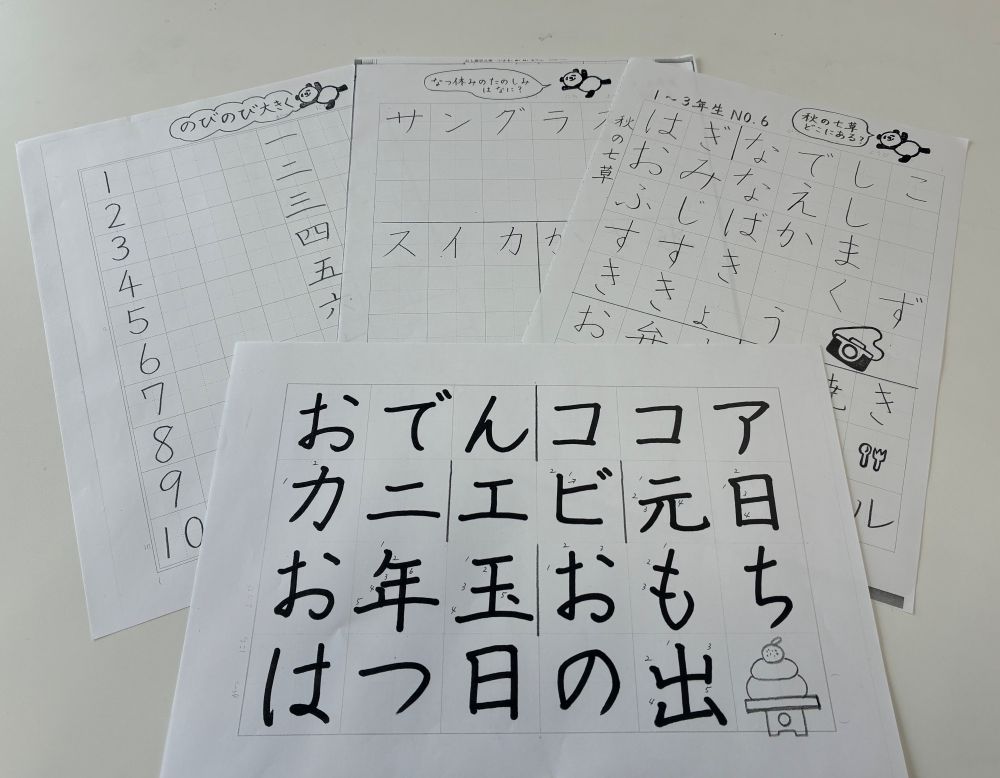 のびのび大きく
1 一
2 二
3 三
4 四
5 五
6
7
8
9
10
なつ休みのたのしみ
はなに?
サングラ
スイカ
1~3年生 NO.6
秋の七草
どこにある?
秋の七草
はぎなでしこ
おみなえし
ふじばかま
すすき くず
ききょう
お弁 き
ル
おでんココア
カニエビ元日
お年玉おもち
はつ日の出